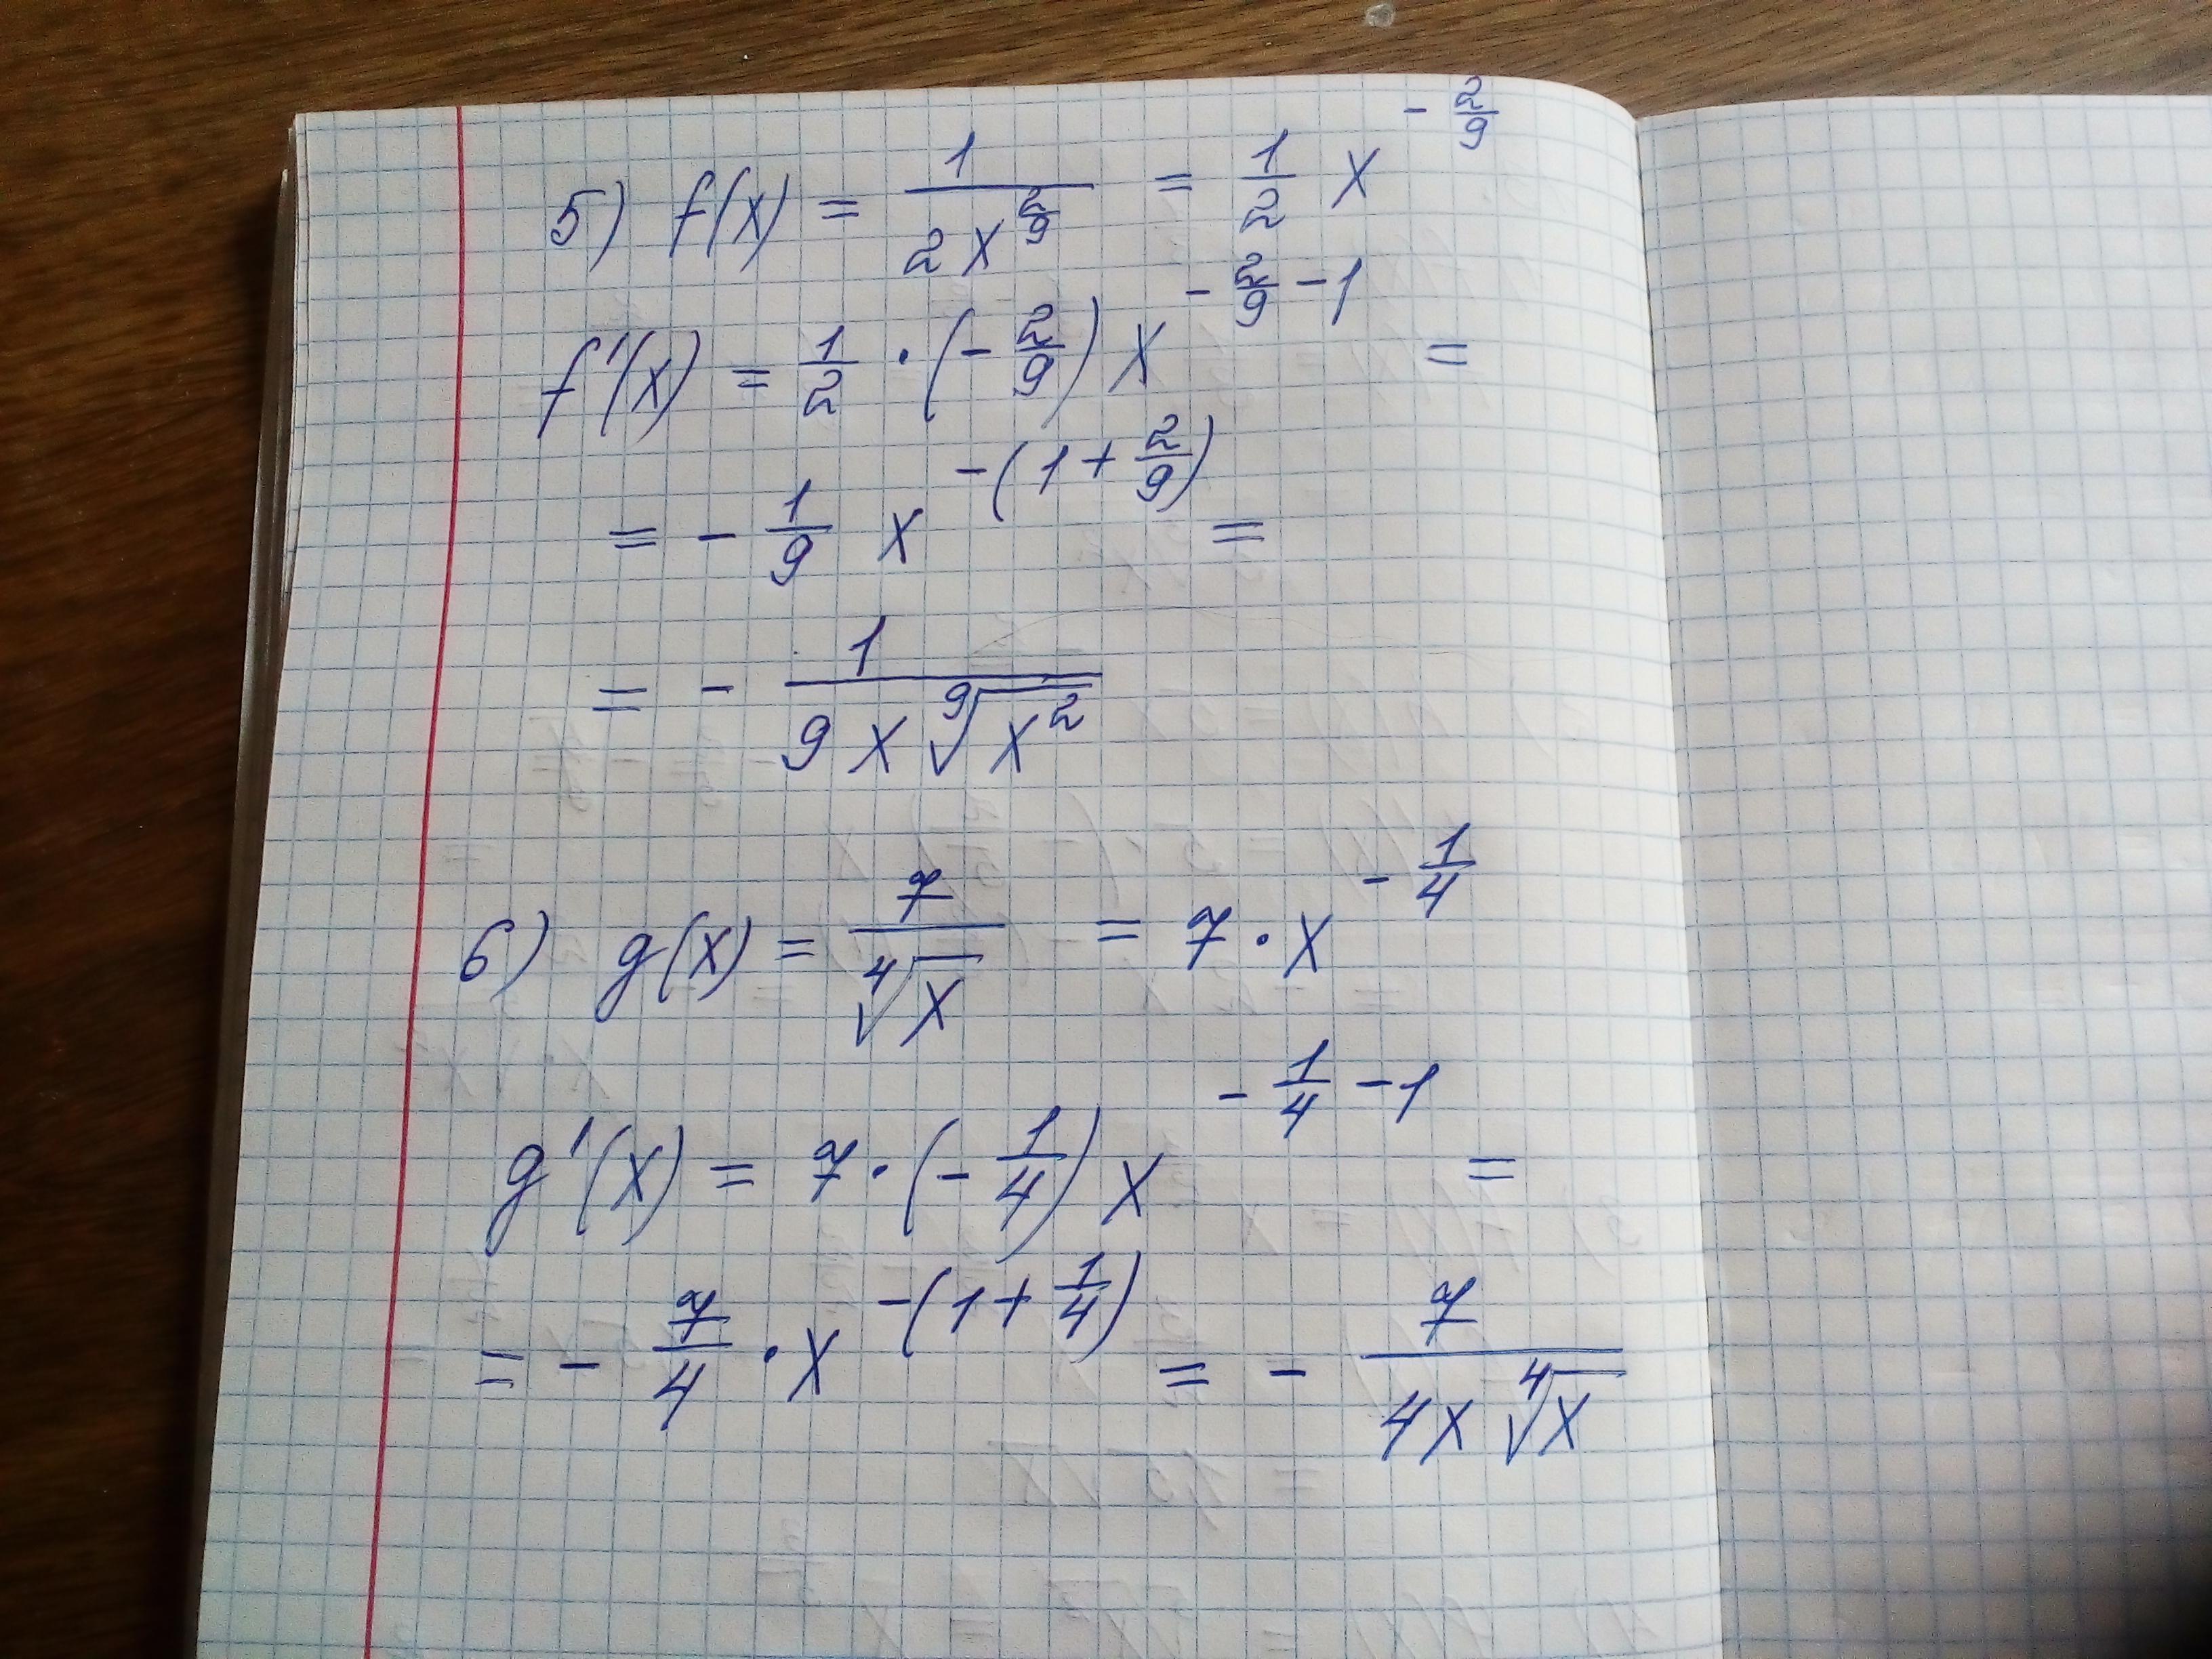 5) f(x) = 1/(2x^(2/9)) = 1/2 x^(-2/9)
f'(x) = 1/2 · (-2/9) x^(-2/9 - 1) =
= - 1/9 x^(-(1 + 2/9)) =
= - 1/(9x ⁹√(x²))
6) g(x) = 7/⁴√x = 7 · x^(-1/4)
g'(x) = 7 · (-1/4) x^(-1/4 - 1) =
= - 7/4 · x^(-(1 + 1/4)) = - 7/(4x ⁴√x)